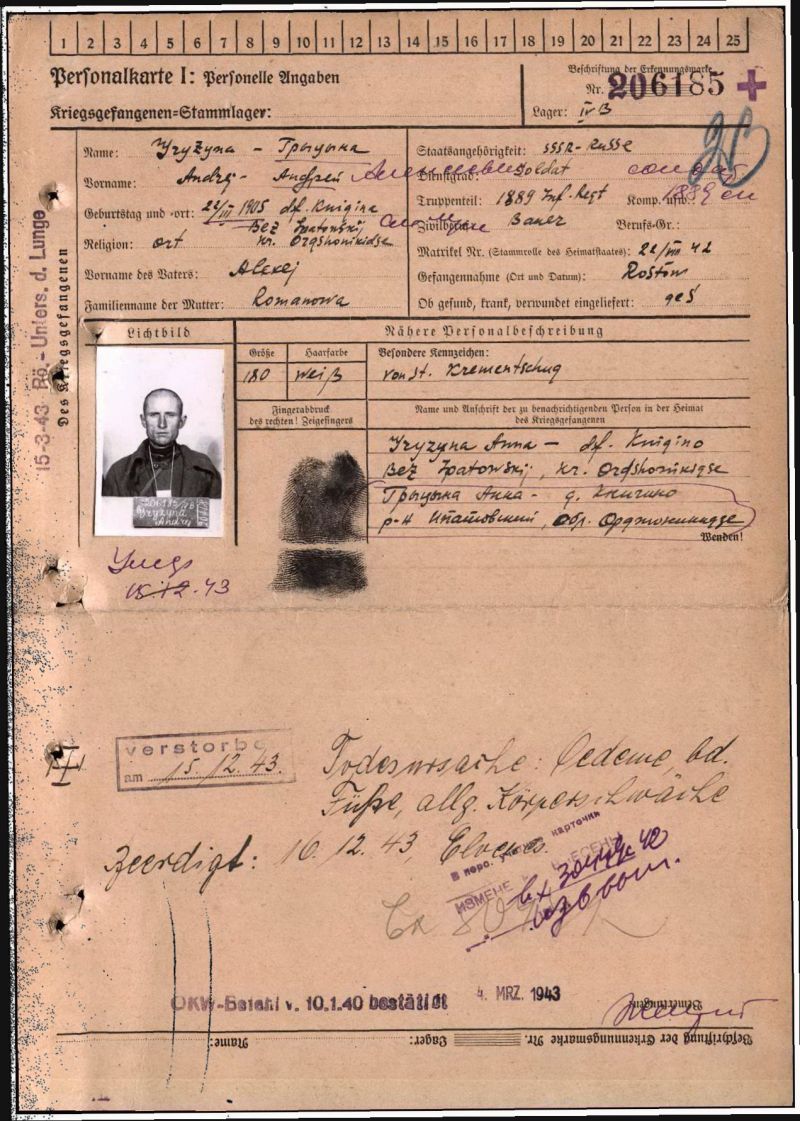 1 2 3 4 5 6 7 8 9 10 11 12 13 14 15 16 17 18 19 20 21 22 23 24 25
Personalkarte I: Personelle Angaben
Kriegsgefangenen=Stammlager:
Beschriftung der Erkennungsmarke
Nr. 206185
Lager: IV B
Des Kriegsgefangenen
15-3-43 Rö.-Unters. d. Lunge
Name: Gryzyna – Грызына
Vorname: Andrej – Андрей Алексеевич
Geburtstag und -ort: 22/III 1905 df. Knigina
Bez Ipatowskij
kr. Ordshonikidse
Religion: ort
Vorname des Vaters: Alexej
Familienname der Mutter: Romanowa
Staatsangehörigkeit: SSSR-Russe
Dienstgrad: Soldat солдат
Truppenteil: 1889 Inf. Regt Komp. usw.: 1889 сп
Zivilberuf: Bauer Berufs-Gr.:
Matrikel Nr. (Stammrolle des Heimatstaates): 22/VII 42
Gefangennahme (Ort und Datum): Rostow
Ob gesund, krank, verwundet eingeliefert: ges
Lichtbild
Nähere Personalbeschreibung
Größe Haarfarbe Besondere Kennzeichen:
180 weiß von St. Krementschug
Fingerabdruck
des rechten! Zeigefingers
Name und Anschrift der zu benachrichtigenden Person in der Heimat
des Kriegsgefangenen
Gryzyna Anna – df. Knigino
Bez Ipatowskij, kr. Ordshonikidse
Грызына Анна - д. Книгино
р-н Ипатовский, обр. Орджоникидзе
Wenden!
Gryzyna
Andrej
15.12.43
verstorbe
am 15.12.43.
Todesursache: Oedeme, bd.
Füße, allg. Körperschwäche
Beerdigt: 16.12.43,
карточки
OKW-Befehl v. 10.1.40 bestätigt
4. MRZ. 1943
Bemerkungen:
Beschriftung der Erkennungsmarke Nr. Lager: Name: